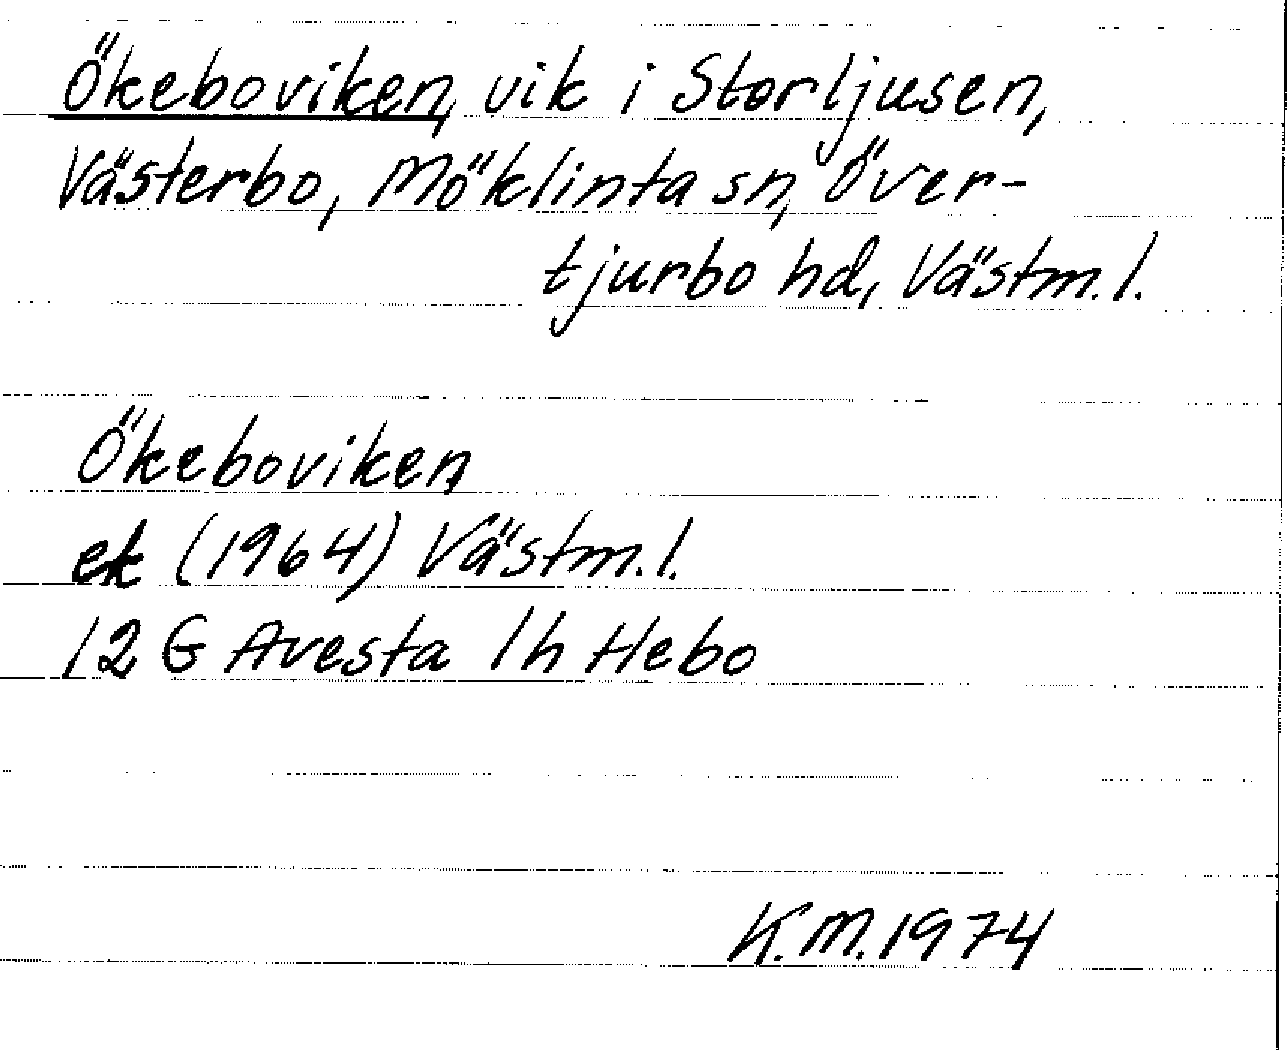 Ökeboviken, vik i Storljusen,
Västerbo, Möklinta sn, Över-
tjurbo hd, Västm. l.
Ökeboviken
ek (1964) Västm. l.
12 G Avesta 1h Hebo
K.M. 1974